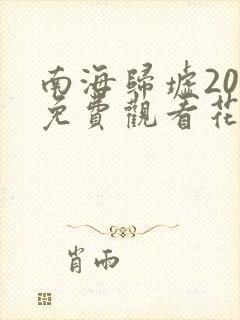 南海歸墟20
免費觀看花
肖雨